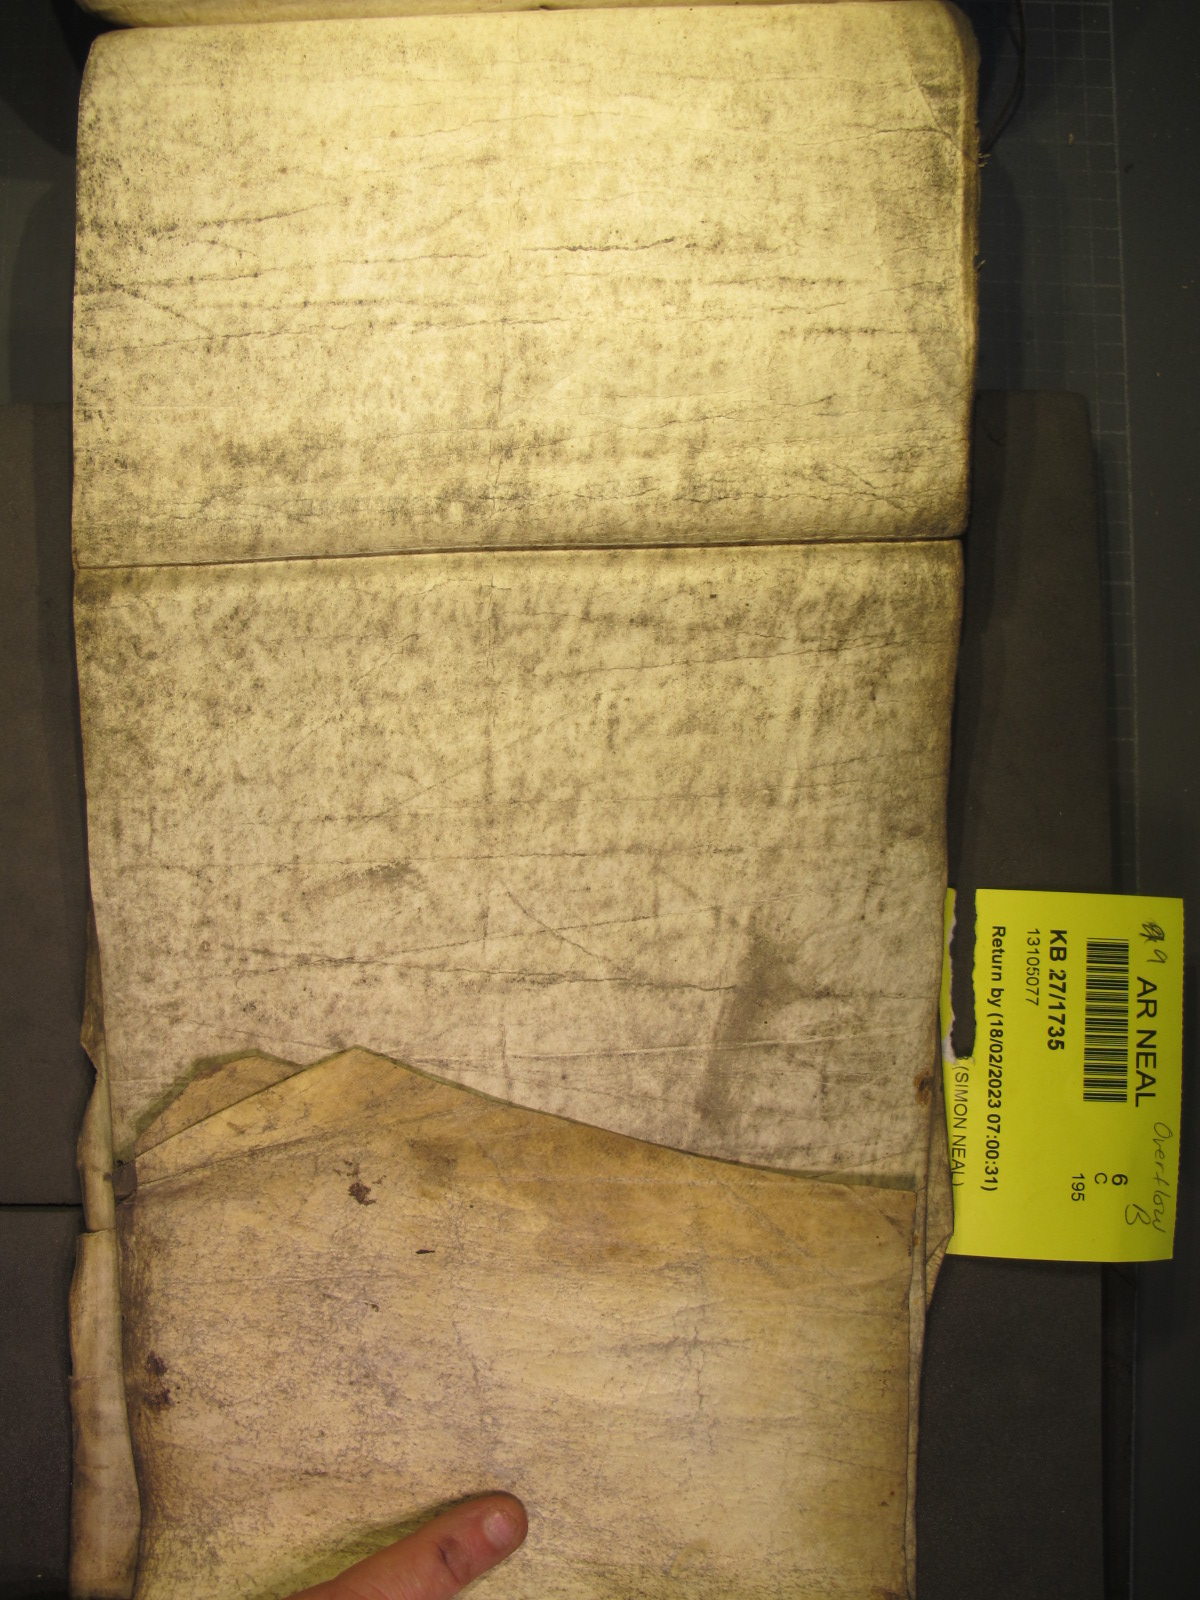 9 AR NEAL Overflow B
6
C
195
KB 27/1735
13105077
Return by (18/02/2023 07:00:31)
(SIMON NEAL)